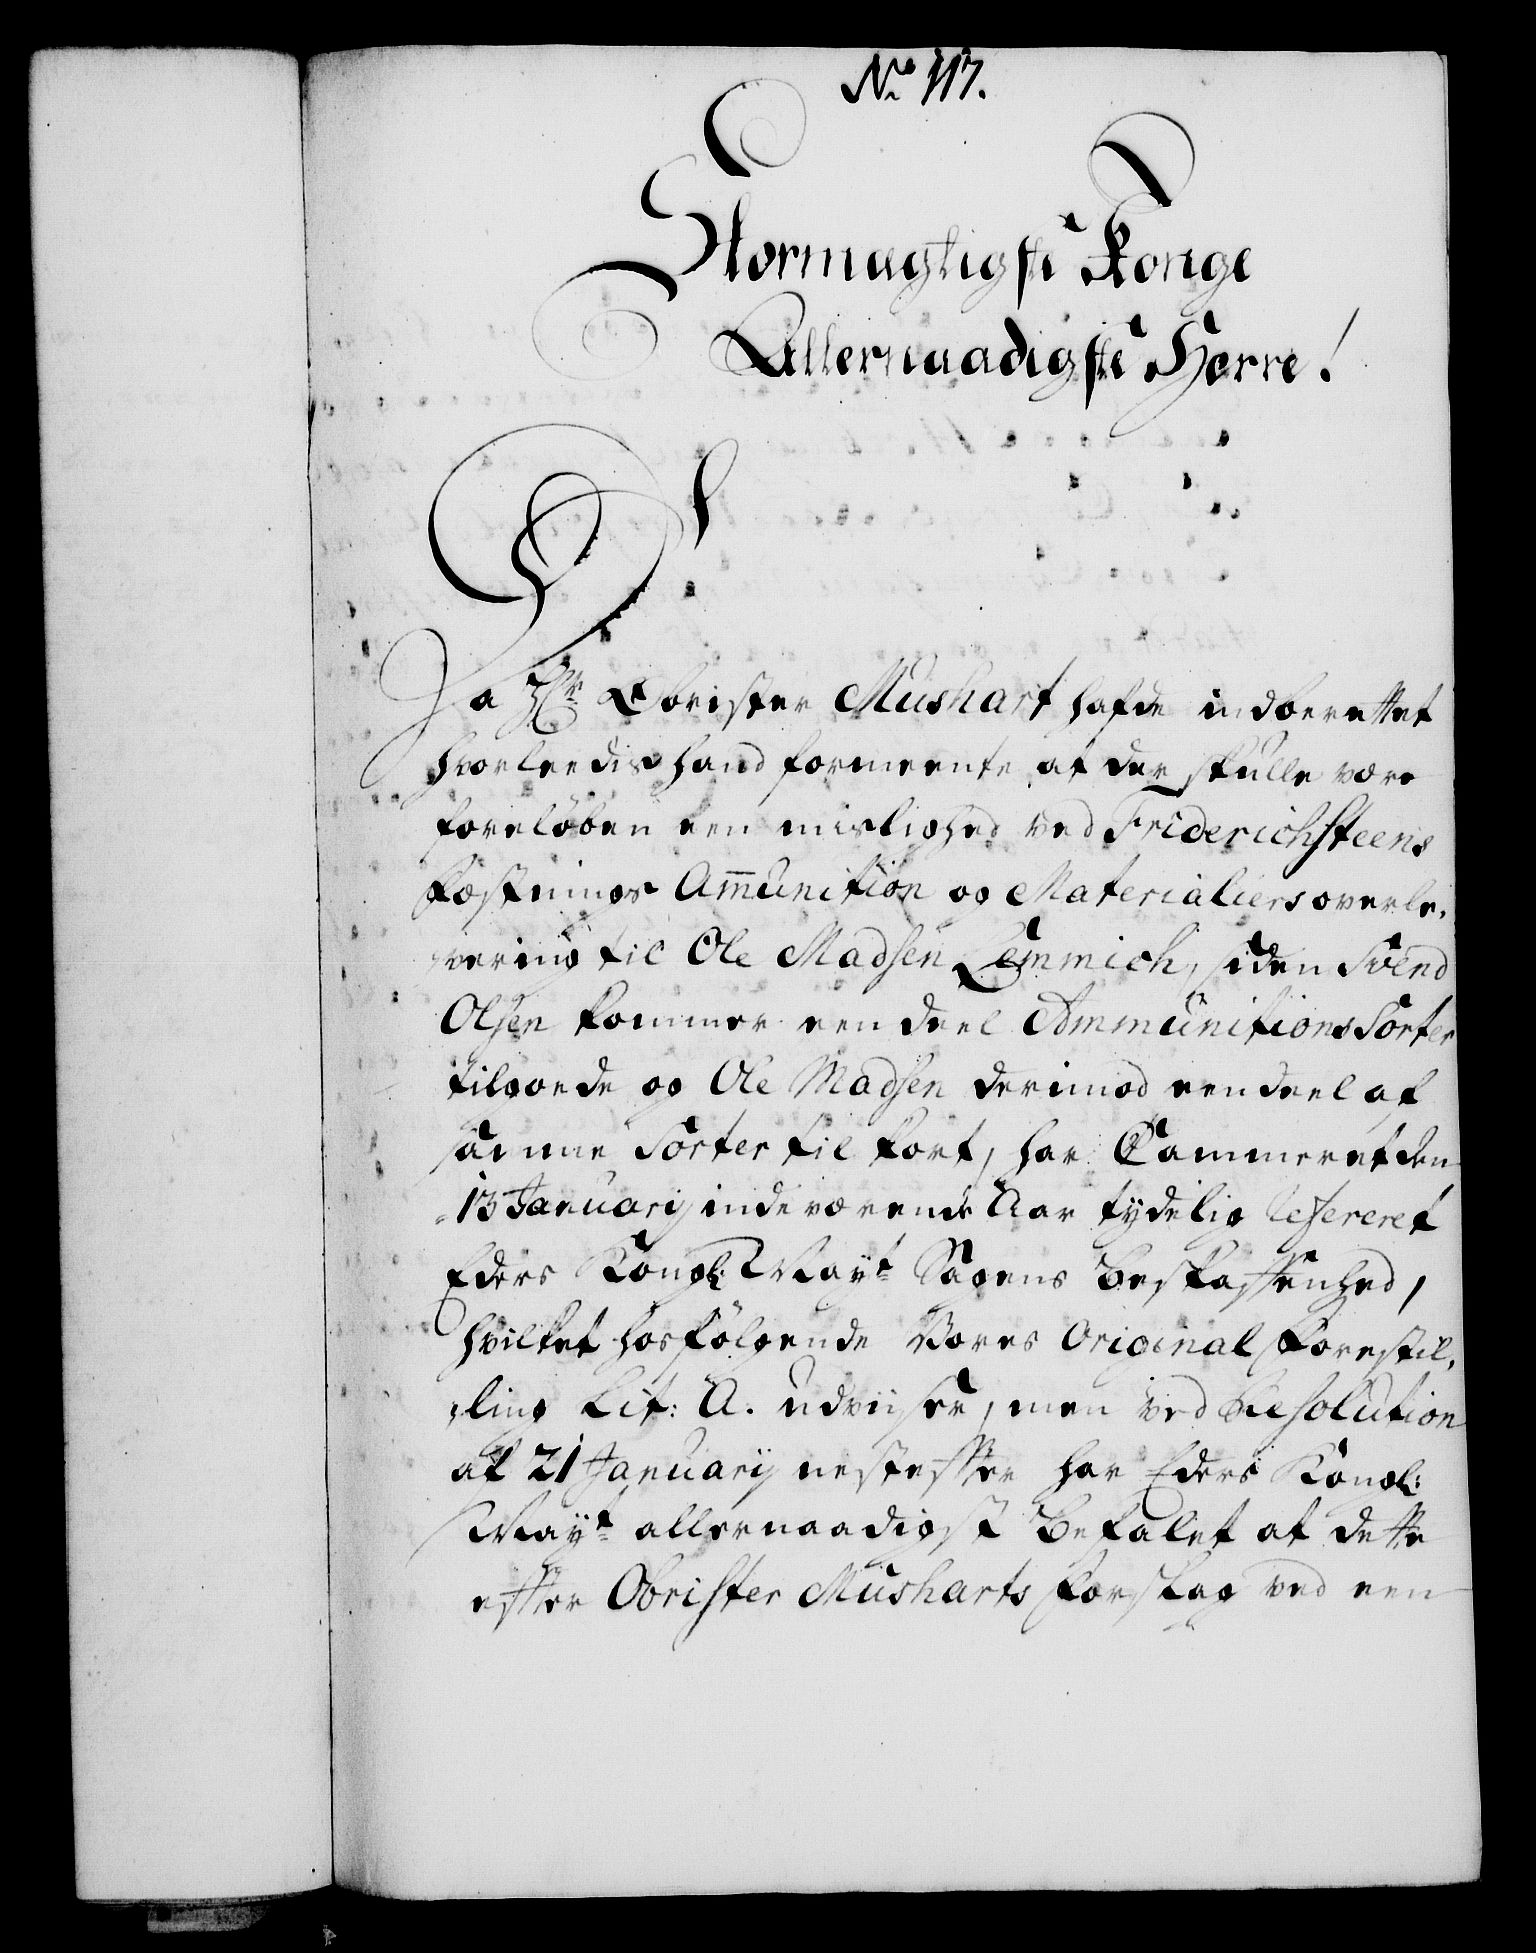 No 117.
Stormægtigste Konge
Allernaadigste Herre!
Da Hr Obrister Mushart hafde indberettet
hvorleedis hand formeente at der skulle være
foreløben een mislighed ved Friderichsteens
Fæstnings Am̄unition og Materialiers overle-
vering til Ole Madsen Lemmich, siden Svend
Olsen kommer een deel Ammunitions Sorter
tilgoede og Ole Madsen derimod een deel af
samme Sorter til kort, har Cammeret den
13 Januarij indeværende Aar tydelig refereret
Eders Kongl: Mayt Sagens Beskaffenhed,
hvilket hosfølgende Vores Original Forestil-
ling Lit: A. udviiser, men ved Resolution
af 21 Januarij nestefter har Eders Kongl:
Mayt allernaadigst Befalet at dette
efter Obrister Musharts Forslag ved een